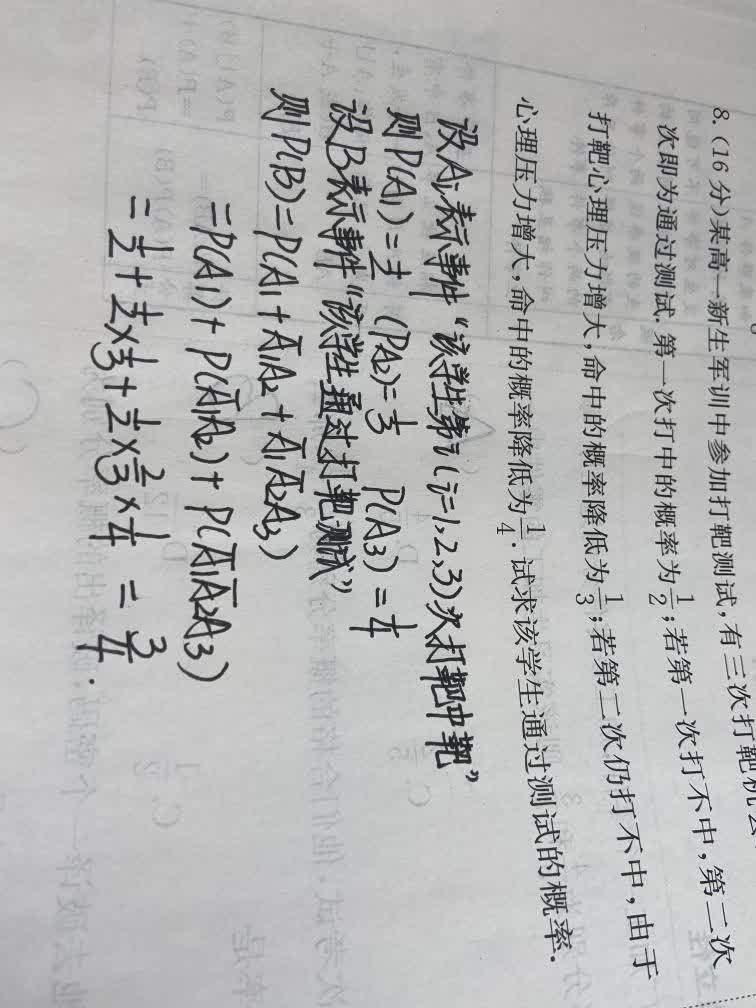 8.(16分)某高一新生军训中参加打靶测试,有三次打靶机会
次即为通过测试.第一次打中的概率为1/2;若第一次打不中,第二次
打靶心理压力增大,命中的概率降低为1/3;若第二次仍打不中,由于
心理压力增大,命中的概率降低为1/4.试求该学生通过测试的概率.
设Ai表示事件“该学生第i(i=1,2,3)次打靶中靶”
则P(A1)=1/2 (PA2)=1/3 P(A3)=1/4
设B表示事件“该学生通过打靶测试”
则P(B)=P(A1+A̅1A2+A̅1A̅2A3)
=P(A1)+P(A̅1A2)+P(A̅1A̅2A3)
=1/2+1/2×1/3+1/2×2/3×1/4=3/4.